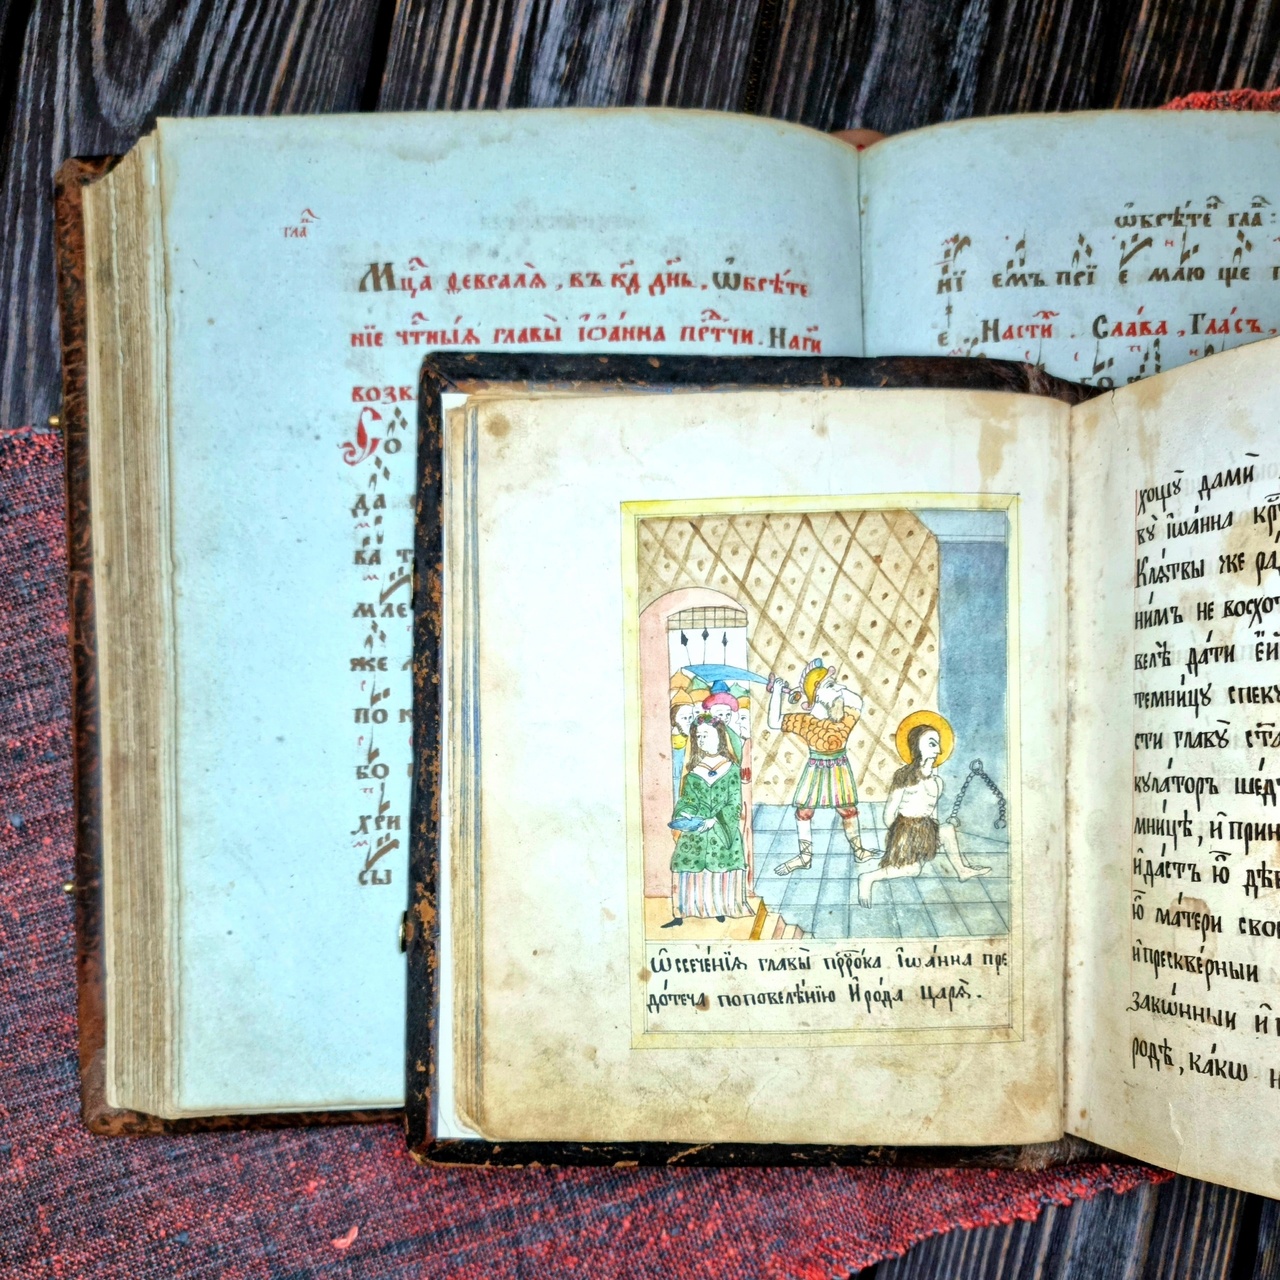 гла
Мц҃а февралѧ̀, въ к҃д дн҃ь. Ѡ҆брѣ́те
нїе чⷭ҇тны́ѧ главы̀ і҆ѡа́нна прⷣтчи. На гй
возв
Со
да
ва т
мле
же
по к
бо
хри
сы
ѡ҆брѣ́те гла :
нї емъ прї е млю ще
е Насти . Сла́ва, Гла́съ,
бо
Ѿсѣче́нїѧ главы̀ прⷪ҇ро́ка і҆ѡа́нна пре
до́теча поповелѣ́нїю И҆́рода царѧ̀.
хощꙋ̀ дами
вꙋ̀ і҆ѡа́нна кр
Клѧ́твы же ра́
ни́мъ не восхот
велѣ̀ да́ти є҆́й
темни́цꙋ спекꙋ
сти главꙋ̀
кꙋла́торъ ше́д
мни́цѣ, и҆ прин
и҆ да́стъ ю҆̀ дѣв
ю҆̀ ма́тери сво
и҆ прескве́рныи
зако́нныи и҆
родѣ, ка́кѡ н